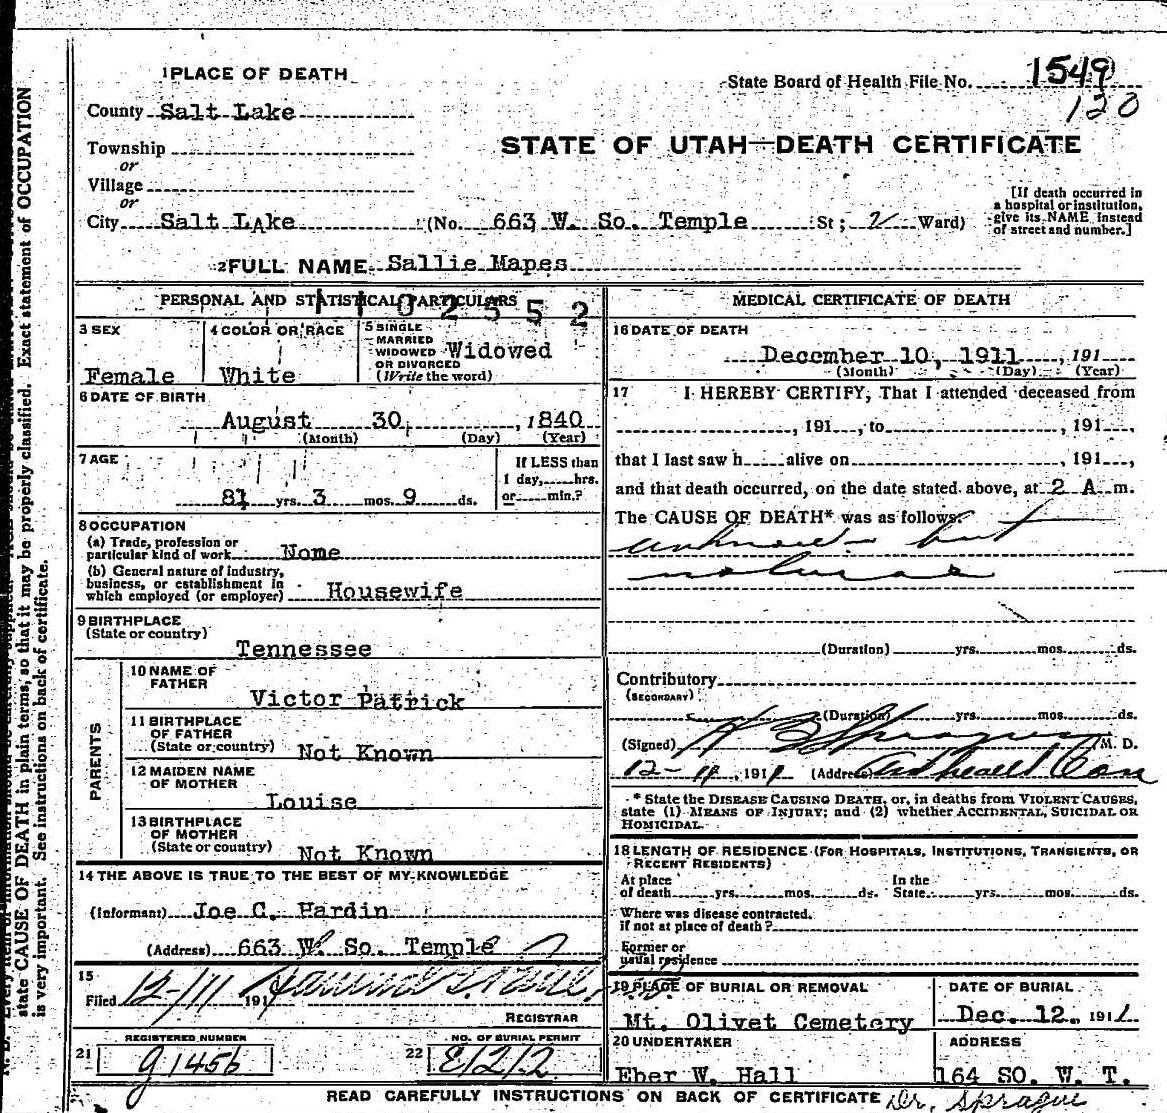 1 PLACE OF DEATH
State Board of Health File No. 1549
120
County Salt Lake
STATE OF UTAH—DEATH CERTIFICATE
Township
or
Village
or
[If death occurred in
a hospital or institution,
give its NAME instead
of street and number.]
City Salt LAke (No. 663 W. So. Temple St; 2 Ward)
2 FULL NAME Sallie Mapes
PERSONAL AND STATISTICAL PARTICULARS
1102552
3 SEX
Female
4 COLOR OR RACE
White
5 SINGLE
MARRIED
WIDOWED Widowed
OR DIVORCED
(Write the word)
6 DATE OF BIRTH
August 30, 1840
(Month) (Day) (Year)
7 AGE
81 yrs. 3 mos. 9 ds.
If LESS than
1 day, hrs.
or min.?
8 OCCUPATION
(a) Trade, profession or
particular kind of work Nome
(b) General nature of industry,
business, or establishment in
which employed (or employer) Housewife
9 BIRTHPLACE
(State or country)
Tennessee
PARENTS
10 NAME OF
FATHER
Victor Patrick
11 BIRTHPLACE
OF FATHER
(State or country) Not Known
12 MAIDEN NAME
OF MOTHER
Louise
13 BIRTHPLACE
OF MOTHER
(State or country) Not Known
14 THE ABOVE IS TRUE TO THE BEST OF MY KNOWLEDGE
(Informant) Joe C. Hardin
(Address) 663 W. So. Temple
15
Filed 12-11 191
REGISTRAR
REGISTERED NUMBER
21 g1456
NO. OF BURIAL PERMIT
22 E1212
MEDICAL CERTIFICATE OF DEATH
16 DATE OF DEATH
December 10, 1911, 191
(Month) (Day) (Year)
17 I HEREBY CERTIFY, That I attended deceased from
, 191 , to , 191 ,
that I last saw h alive on , 191 ,
and that death occurred, on the date stated above, at 2 A m.
The CAUSE OF DEATH* was as follows:
unknown but
natural
(Duration) yrs. mos. ds.
Contributory
(SECONDARY)
(Duration) yrs. mos. ds.
(Signed) H Sprague M. D.
12-11, 1911 (Address)
* State the DISEASE CAUSING DEATH, or, in deaths from VIOLENT CAUSES,
state (1) MEANS OF INJURY; and (2) whether ACCIDENTAL, SUICIDAL OR
HOMICIDAL.
18 LENGTH OF RESIDENCE (FOR HOSPITALS, INSTITUTIONS, TRANSIENTS, OR
RECENT RESIDENTS)
At place In the
of death yrs. mos. ds. State yrs. mos. ds.
Where was disease contracted.
if not at place of death?
Former or
usual residence
19 PLACE OF BURIAL OR REMOVAL
Mt. Olivet Cemetery
DATE OF BURIAL
Dec. 12. 1911
20 UNDERTAKER
Eber W. Hall
ADDRESS
164 SO. W. T.
READ CAREFULLY INSTRUCTIONS ON BACK OF CERTIFICATE Dr. Sprague
state CAUSE OF DEATH in plain terms, so that it may be properly classified. Exact statement of OCCUPATION
is very important. See instructions on back of certificate.